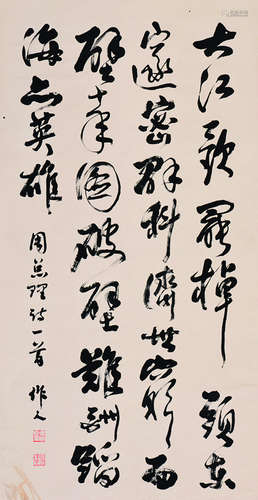 大江歌罷掉頭東
邃密群科濟世窮面
壁十年图破壁難酬蹈
海亦英雄
周总理诗一首 作人